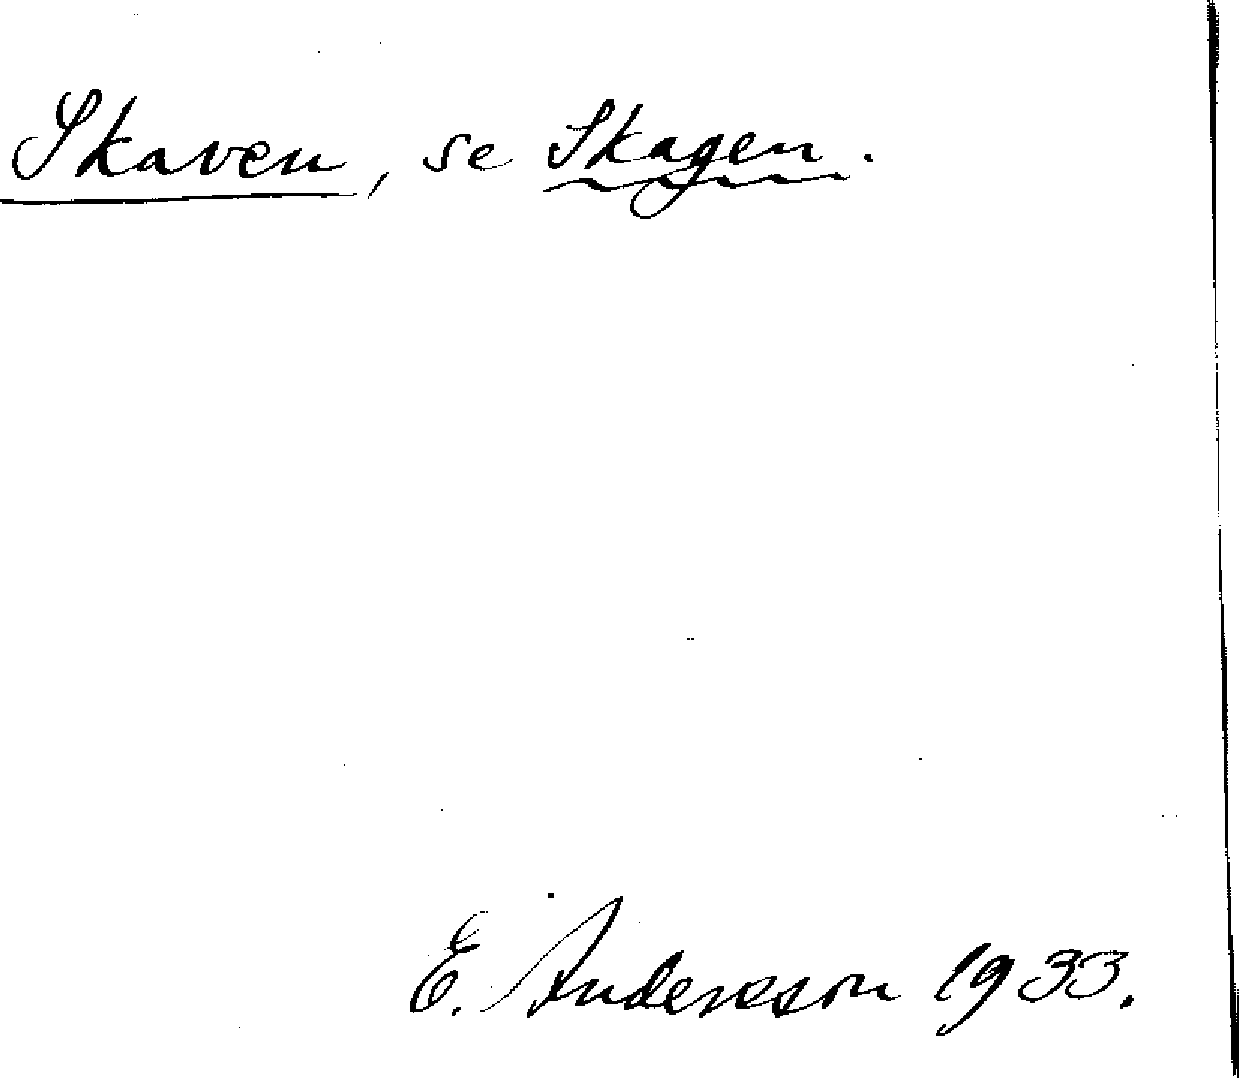 Skaven, se Skagen.
E. Andersson 1933.